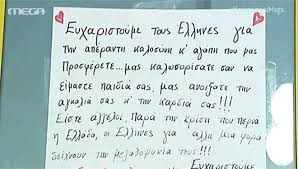 MEGA
Ευχαριστούμε τους Ελληνες για
την απέραντη καλοσύνη κ' αγάπη που μας
Προσφέρετε...μας καλωσορίσατε σαν να
είμαστε παιδιά σας, μας ανοίξατε την
αγκαλιά σας κ' την καρδιά σας!!!
Είστε άγγελοι. Παρά την κρίση που περνά
η Ελλάδα, οι Ελληνες για άλλη μια φορά
δείχνουν την μεγαλοψυχία τους!!!
Ευχαριστούμε